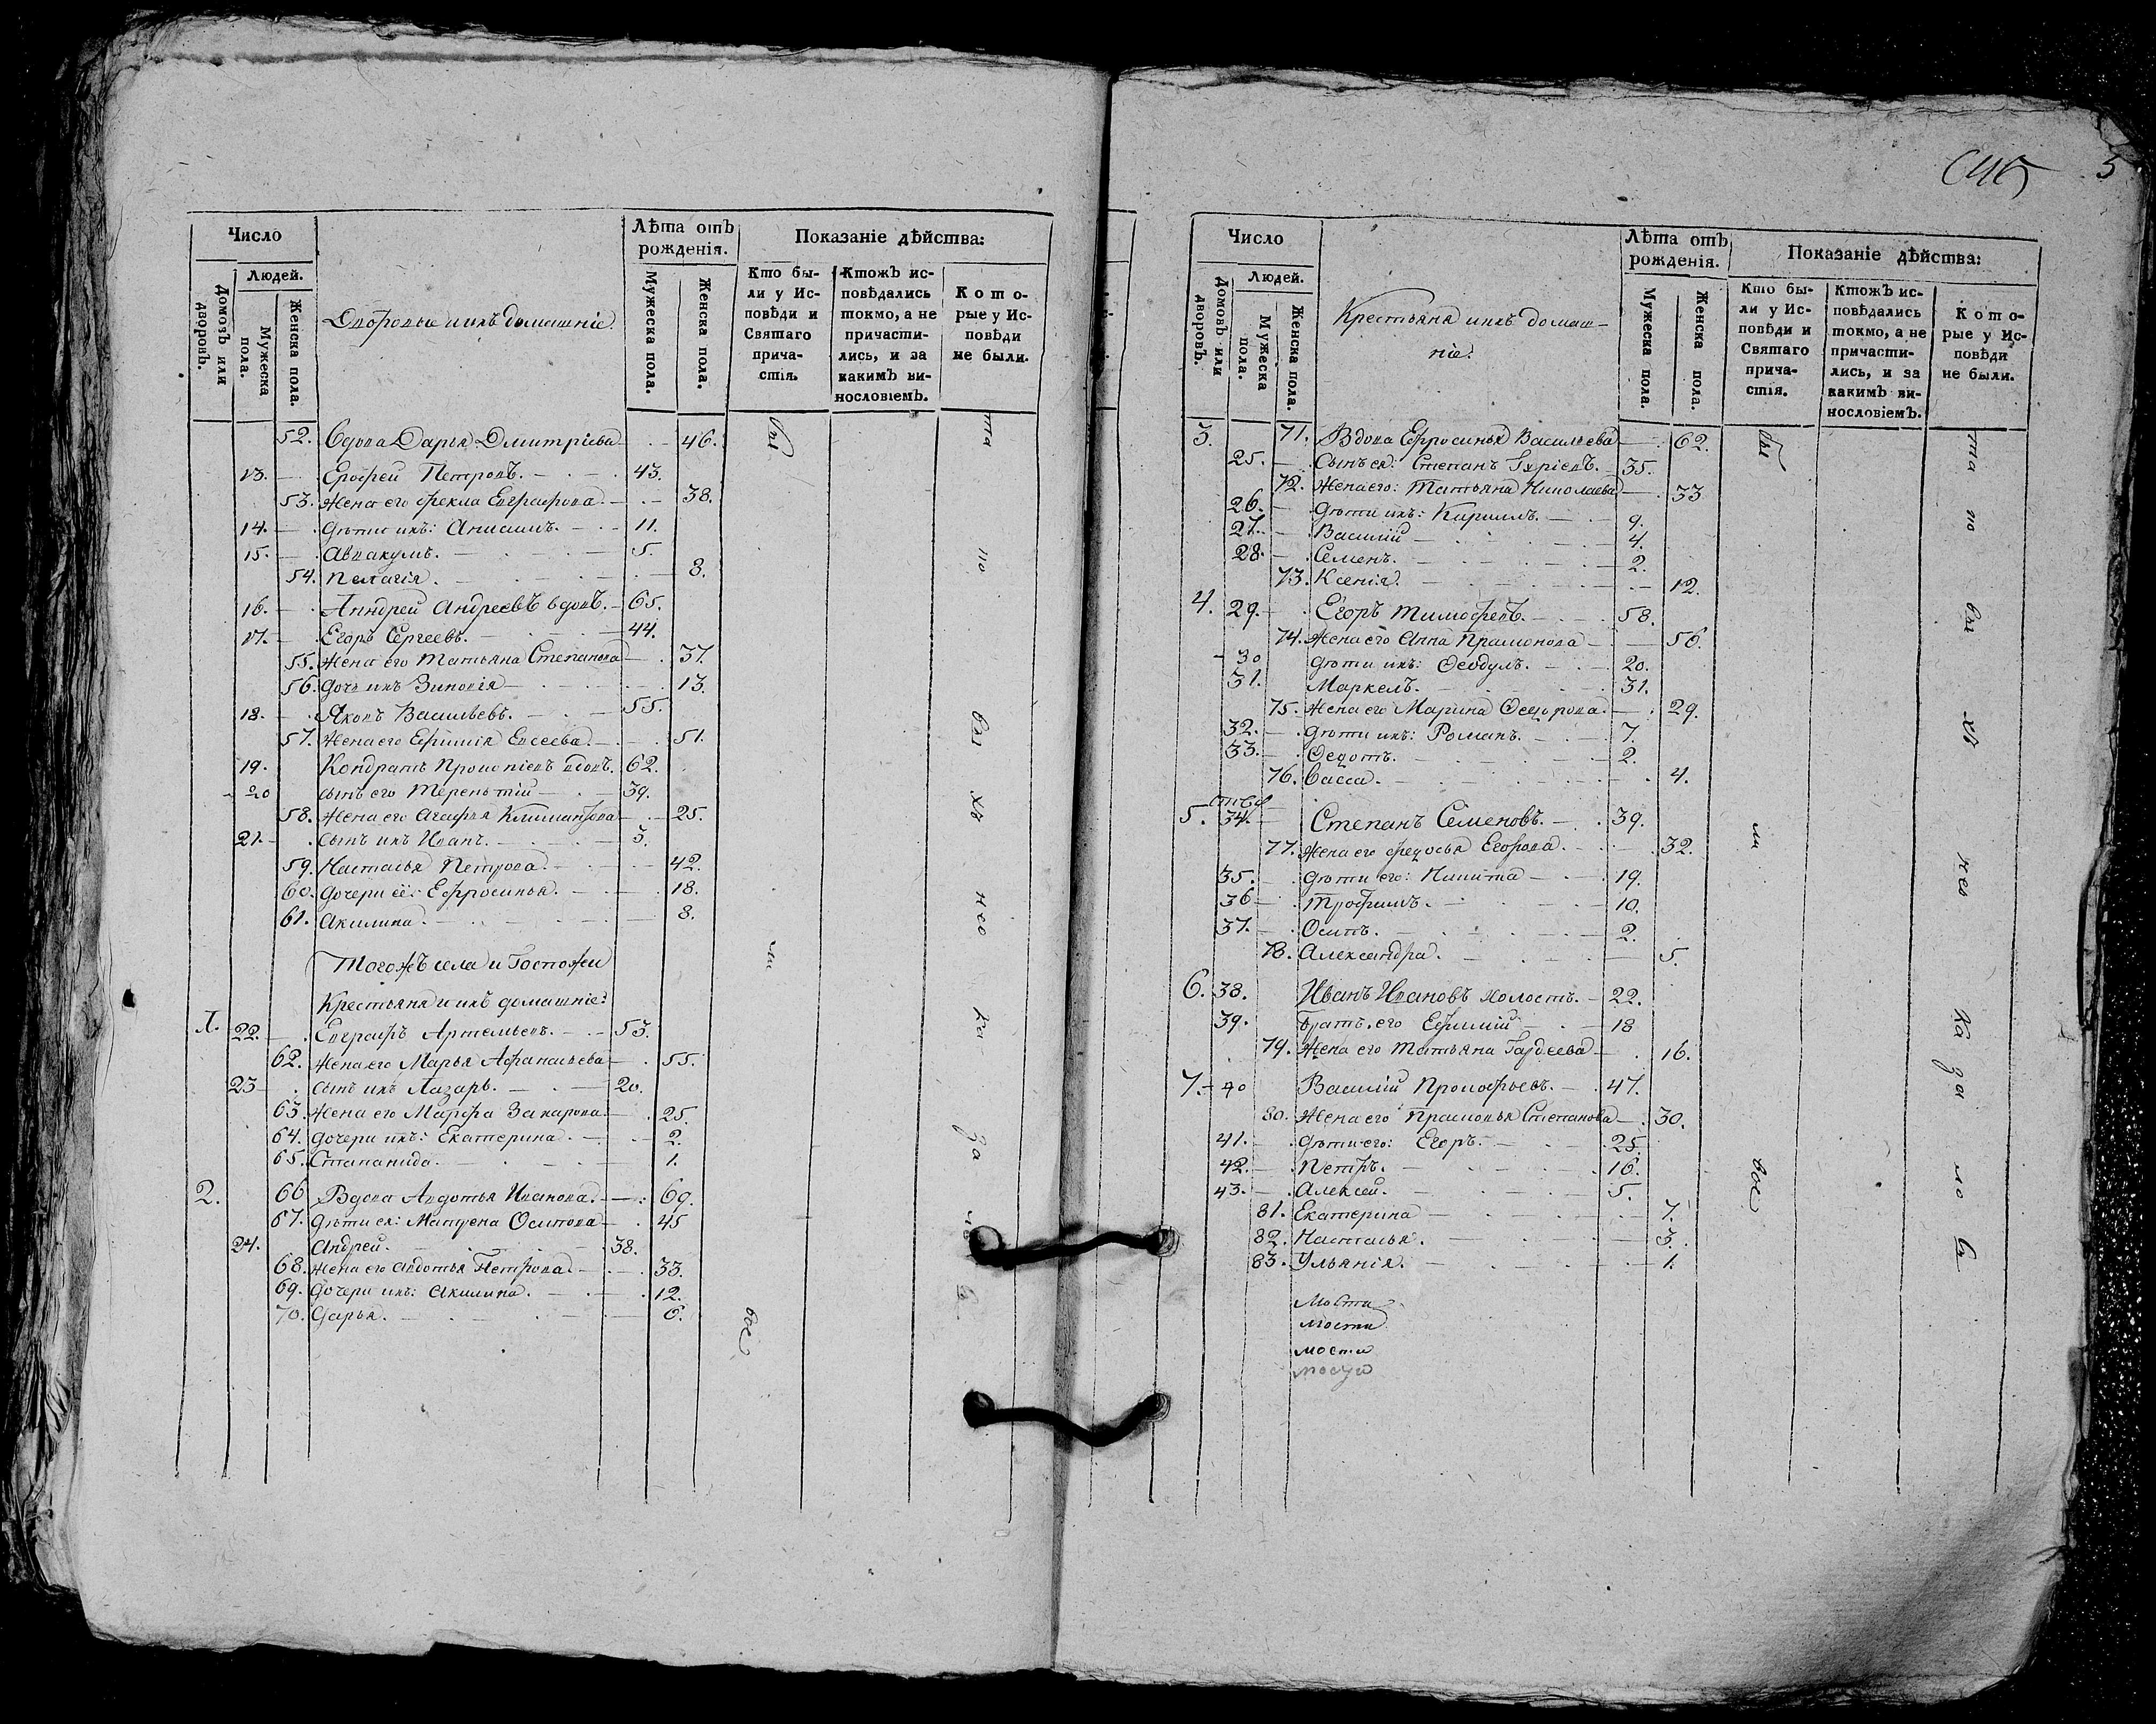 Число
Людей.
Домовъ или дворовъ.
Мужеска пола.
Женска пола.
Дворовые и ихъ домашніе.
Лѣта отъ рожденія.
Мужеска пола.
Женска пола.
Показаніе дѣйства:
Кто были у Исповѣди и Святаго причастія.
Ктожъ исповѣдались токмо, а не причастились, и за какимъ винословіемъ.
Которые у Исповѣди не были.
52. Вдова Дарья Дмитріева 46.
13. Ерофей Петровъ. 43.
53. Жена его Фекла Евграфова 38.
14. Дѣти ихъ: Анисимъ. 11.
15. Аввакумъ. 5.
54. Пелагія. 8.
16. Андрей Андреевъ вдовъ. 65.
17. Егоръ Сергеевъ. 44.
55. Жена его Татьяна Степанова 37.
56. Дочь ихъ Зиновія 13.
18. Яковъ Васильевъ. 55.
57. Жена его Ефимія Евсеева. 51.
19. Кондратъ вдовъ. 62.
20 Сынъ его Терентій 39.
58. Жена его Агафья 25.
21. Сынъ ихъ Иванъ. 3.
59. Наталья Петрова. 42.
60. Дочери её: Ефросинья. 18.
61. Акилина. 8.
Тогожъ села и Госпожи
Крестьяня и ихъ домашніе:
1. 22. Евграфъ Артемьевъ. 53.
62. Жена его Марья Афанасьева 55.
23 Сынъ ихъ Лазарь. 20.
63. Жена его Марфа Захарова. 25.
64. Дочери ихъ: Екатерина. 2.
65. Степанида. 1.
2. 66 Вдова Авдотья Иванова. 69.
67. Дѣти ея: Матрена Осипова 45
24. Андрей. 38.
68. Жена его Авдотья Петрова. 33.
69. Дочери ихъ: Акилина. 12.
70. Дарья. 6.
5
Число
Людей.
Домовъ или дворовъ.
Мужеска пола.
Женска пола.
Крестьяня ихъ домаш-
ніе:
Лѣта отъ рожденія.
Мужеска пола.
Женска пола.
Показаніе дѣйства:
Кто были у Исповѣди и Святаго причастія.
Ктожъ исповѣдались токмо, а не причастились, и за какимъ винословіемъ.
Которые у Исповѣди не были.
3. 71. Вдова Ефросинья Васильева 62.
25. Сынъ ея: Степанъ Гуріевъ. 35.
72. Жена его: Татьяна Николаева 33
26. Дѣти ихъ: Кирилъ. 9.
27. Василій 4.
28. Семенъ. 2.
73. Ксенія. 12.
4. 29. Егоръ Тимофеевъ. 58.
74. Жена его Анна 56.
30 Дѣти ихъ: Ѳеодулъ. 20.
31. Маркелъ. 31.
75. Жена его Марина Ѳедорова. 29.
32. Дѣти ихъ: Романъ. 7.
33. Ѳедотъ. 2.
76. Васса. 4.
5. 34. Степанъ Семеновъ. 39.
77. Жена его Федосья Егорова. 32.
35. Дѣти его: Никита 19.
36 Трофимъ. 10.
37. Осипъ. 2.
78. Александра. 5.
6. 38. Иванъ Ивановъ холостъ. 22.
39. Братъ его Ефимій 18
79. Жена его Татьяна Гордеева 16.
7. 40 Василій Прокофьевъ. 47.
80. Жена его Степанова 30.
41. Дѣти его: Егоръ. 25.
42. Петръ. 16.
43. Алексей. 5.
81. Екатерина 7.
82. Наталья. 3.
83. Ульянія. 1.